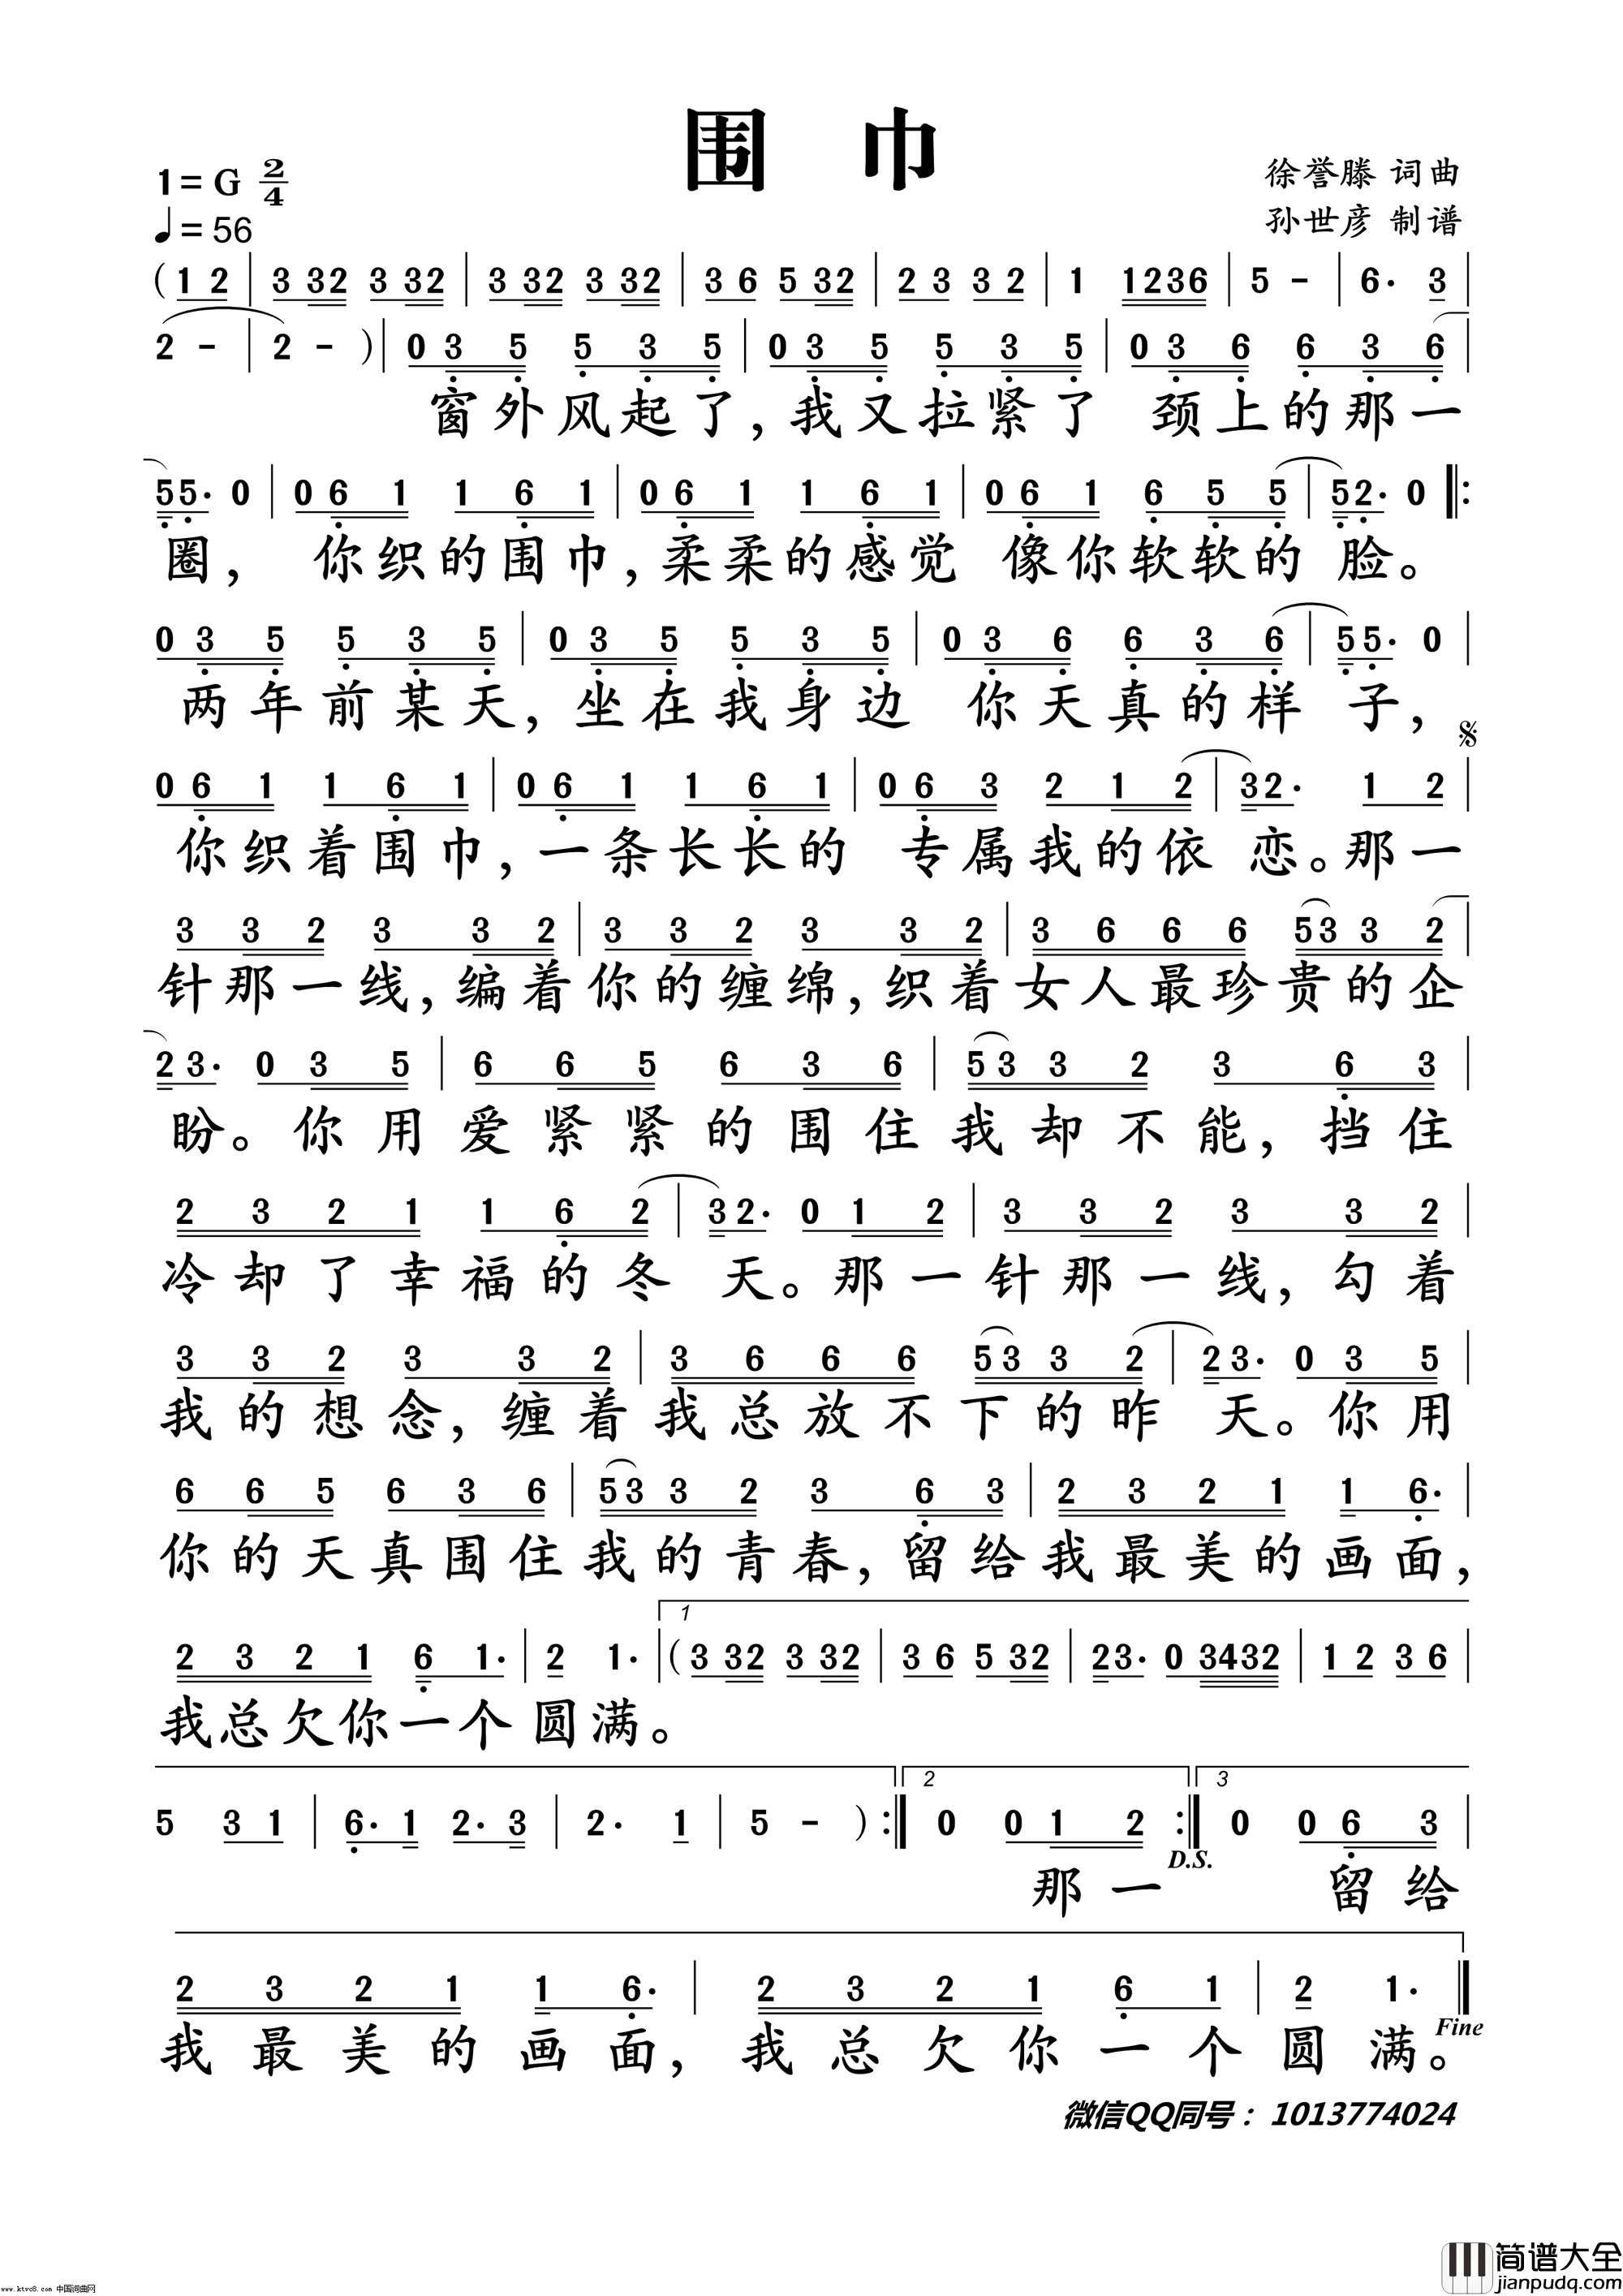 围 巾
1=G 2/4
♩=56
徐誉滕 词曲
孙世彦 制谱
( 1 2 | 3 32 3 32 | 3 32 3 32 | 3 6 5 32 | 2 3 3 2 | 1 1236 | 5 - | 6. 3 |
2 - | 2 - ) | 0 3 5 5 3 5 | 0 3 5 5 3 5 | 0 3 6 6 3 6 |
窗外风起了,我又拉紧了 颈上的那一
55. 0 | 0 6 1 1 6 1 | 0 6 1 1 6 1 | 0 6 1 6 5 5 | 52. 0 ‖:
圈, 你织的围巾,柔柔的感觉 像你软软的脸。
0 3 5 5 3 5 | 0 3 5 5 3 5 | 0 3 6 6 3 6 | 55. 0 |
两年前某天,坐在我身边 你天真的样子,
0 6 1 1 6 1 | 0 6 1 1 6 1 | 0 6 3 2 1 2 | 32. 1 2 |
你织着围巾,一条长长的 专属我的依恋。那一
3 3 2 3 3 2 | 3 3 2 3 3 2 | 3 6 6 6 53 3 2 |
针那一线,编着你的缠绵,织着女人最珍贵的企
23. 0 3 5 | 6 6 5 6 3 6 | 53 3 2 3 6 3 |
盼。你用爱紧紧的围住我却不能,挡住
2 3 2 1 1 6 2 | 32. 0 1 2 | 3 3 2 3 3 2 |
冷却了幸福的冬天。那一针那一线,勾着
3 3 2 3 3 2 | 3 6 6 6 53 3 2 | 23. 0 3 5 |
我的想念,缠着我总放不下的昨天。你用
6 6 5 6 3 6 | 53 3 2 3 6 3 | 2 3 2 1 1 6. |
你的天真围住我的青春,留给我最美的画面,
1
2 3 2 1 6 1. | 2 1. | ( 3 32 3 32 | 3 6 5 32 | 23. 0 3432 | 1 2 3 6 |
我总欠你一个圆满。
2 3
5 3 1 | 6. 1 2. 3 | 2. 1 | 5 - ) :‖ 0 0 1 2 :‖ 0 0 6 3 |
D.S.
那一 留给
2 3 2 1 1 6. | 2 3 2 1 6 1 | 2 1. ‖
Fine
我最美的画面,我总欠你一个圆满。
微信QQ同号:1013774024
简谱大全
jianpudq.com
www.ktvc8.com 中国词曲网